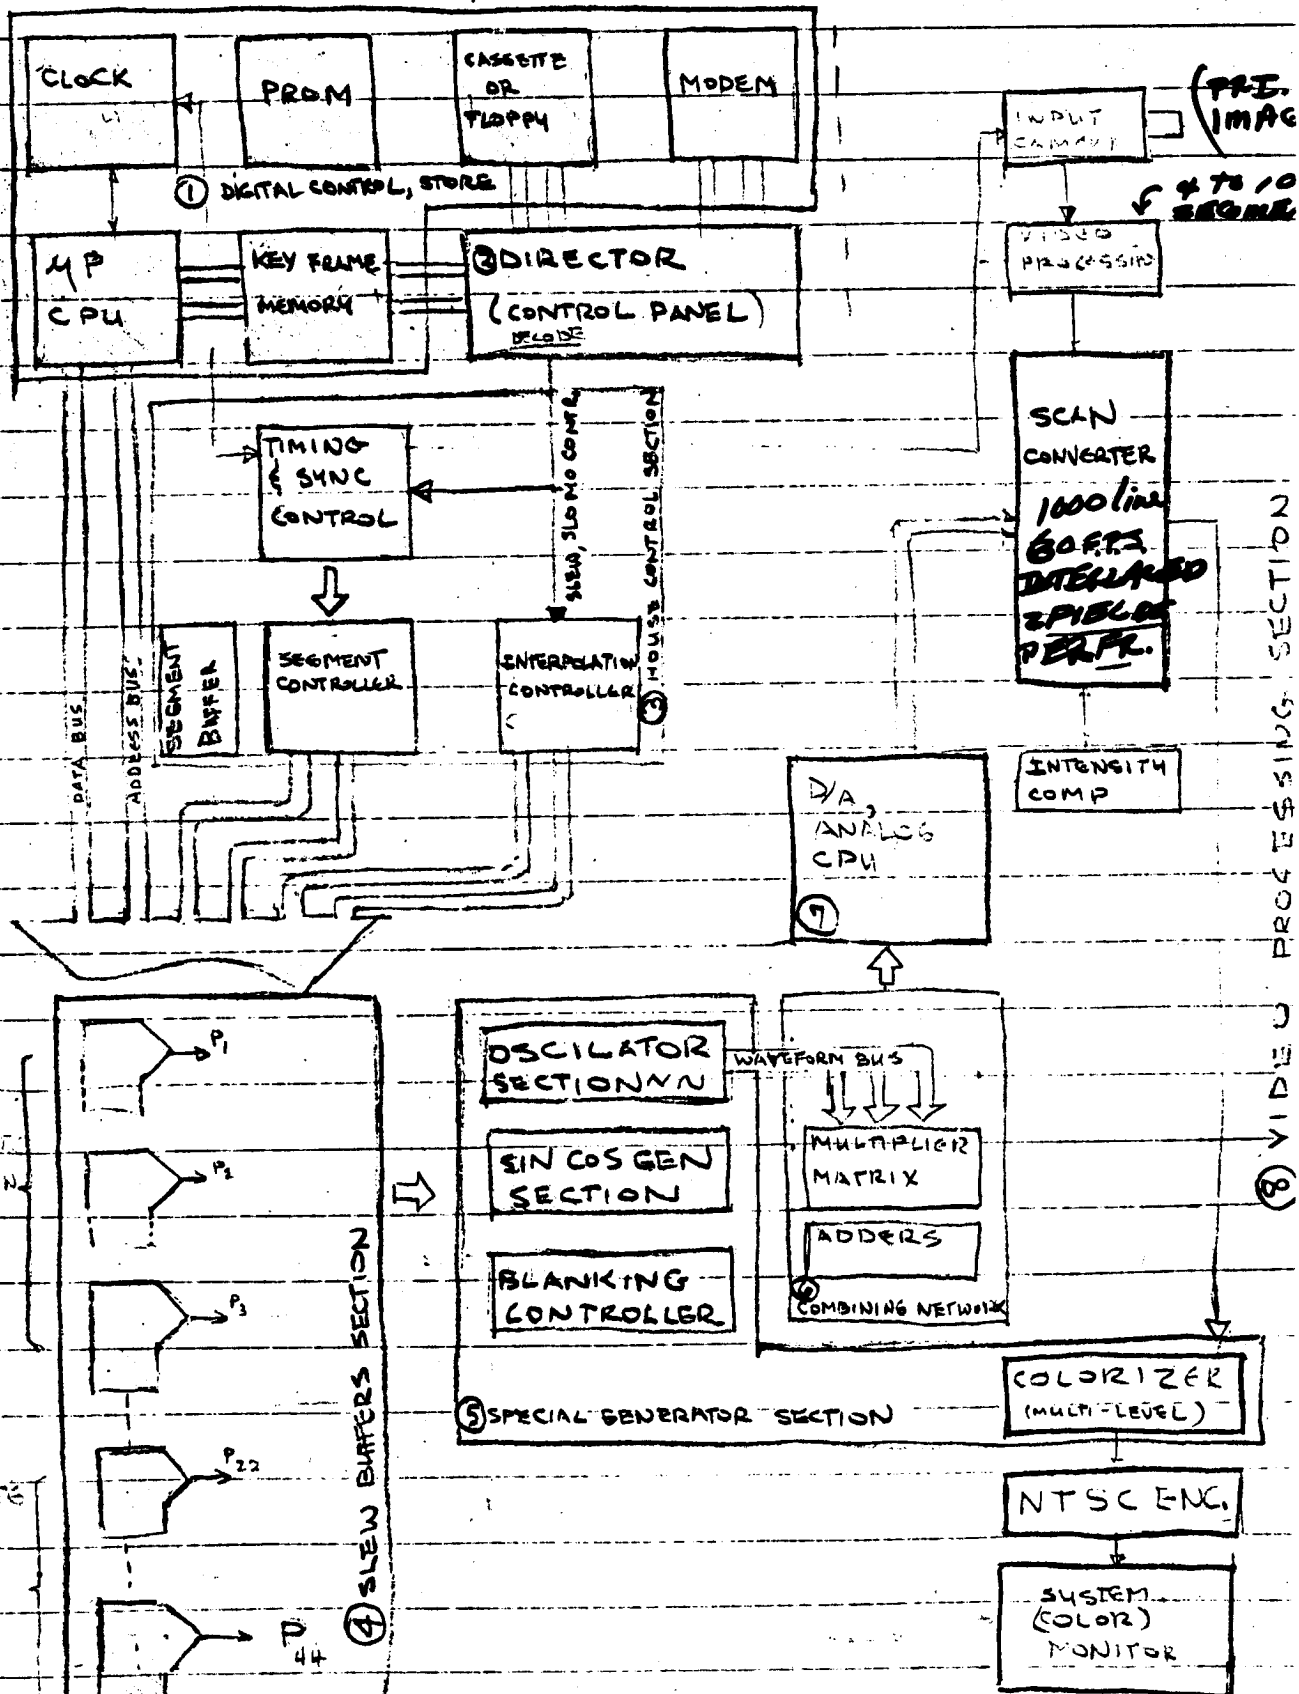 CLOCK
PROM
CASSETTE
OR
FLOPPY
MODEM
INPUT
(PRI.
IMAG
① DIGITAL CONTROL, STORE
4 TO 10
SEGME
μP
CPU
KEY FRAME
MEMORY
② DIRECTOR
(CONTROL PANEL)
DECODE
VIDEO
PROCESSIN
TIMING
& SYNC
CONTROL
SLEW, SLOMO CONTR.
③ MOUSE CONTROL SECTION
SCAN
CONVERTER
1000 line
60 F.P.S.
INTERLACED
2 FIELDS
PER FR.
SEGMENT
BUFFER
SEGMENT
CONTROLLER
INTERPOLATION
CONTROLLER
DATA BUS
ADDRESS BUS
INTENSITY
COMP
D/A,
ANALOG
CPU
⑦
⑧ VIDEO PROCESSING SECTION
P1
P2
P3
P22
P44
④ SLEW BUFFERS SECTION
OSCILATOR
SECTION
WAVEFORM BUS
SIN COS GEN
SECTION
BLANKING
CONTROLLER
MULTIPLIER
MATRIX
ADDERS
⑥
COMBINING NETWORK
⑤ SPECIAL GENERATOR SECTION
COLORIZER
(MULTI-LEVEL)
NTSC ENC.
SYSTEM
(COLOR)
MONITOR